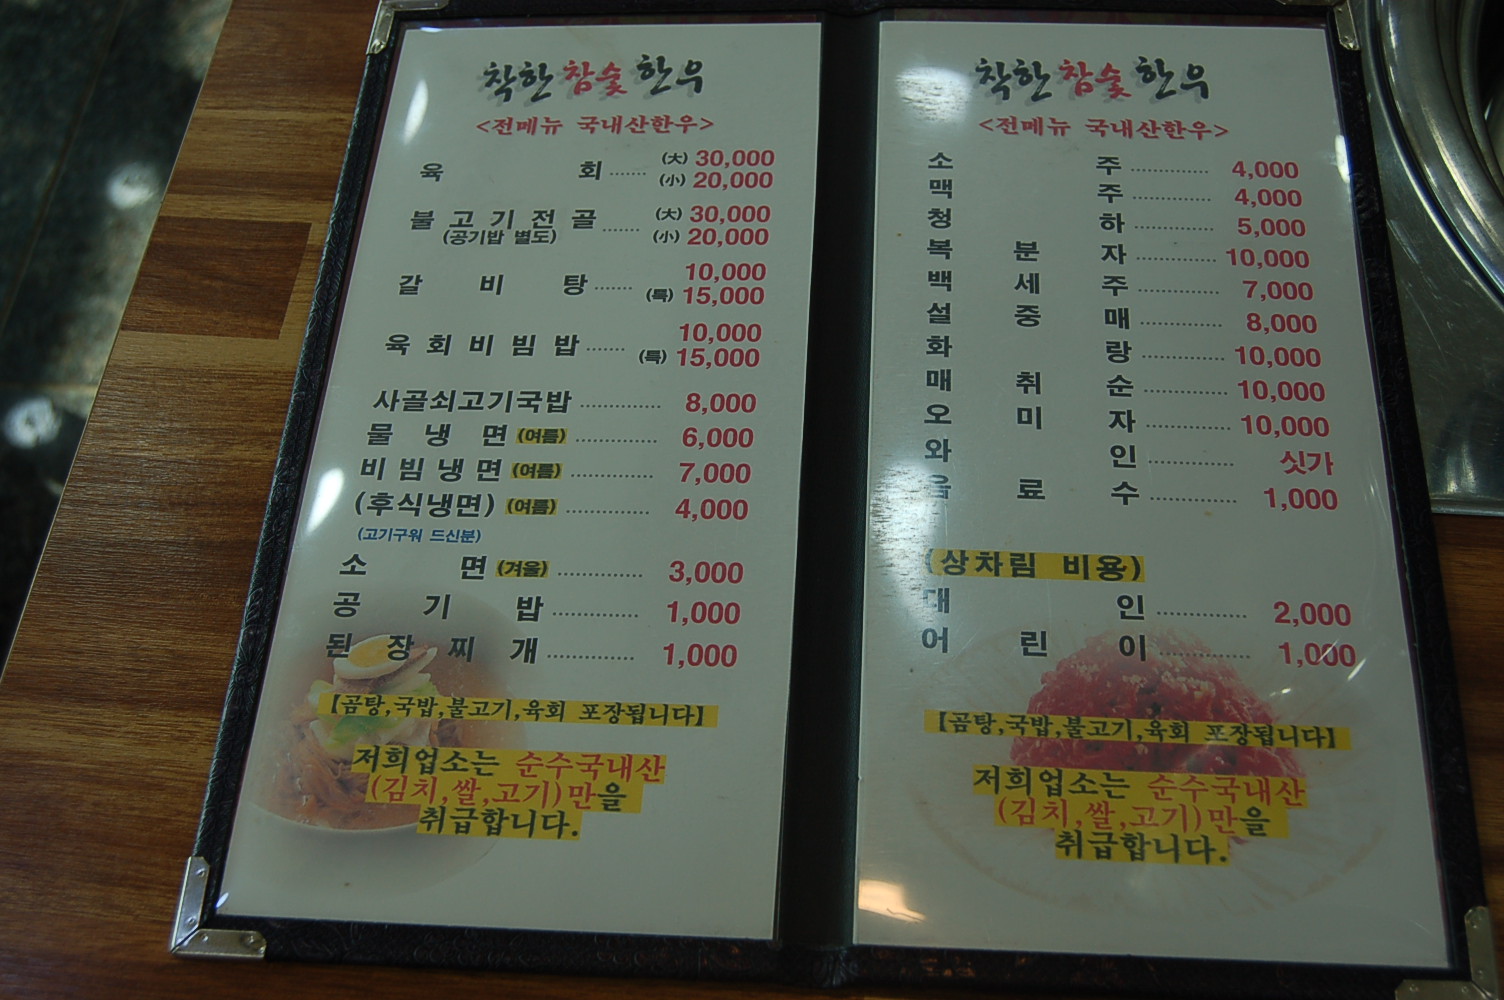 착한참숯한우
<전메뉴 국내산한우>
육 회 ...... (大) 30,000
(小) 20,000
불고기전골 ...... (大) 30,000
(공기밥 별도) (小) 20,000
갈 비 탕 ...... 10,000
(특) 15,000
육회비빔밥 ...... 10,000
(특) 15,000
사골쇠고기국밥 ............ 8,000
물 냉 면 (여름) ............ 6,000
비빔냉면 (여름) ............ 7,000
(후식냉면) (여름) ............ 4,000
(고기구워 드신분)
소 면 (겨울) ............ 3,000
공 기 밥 ............ 1,000
된 장 찌 개 ............ 1,000
【곰탕,국밥,불고기,육회 포장됩니다】
저희업소는 순수국내산
(김치,쌀,고기)만을
취급합니다.
착한참숯한우
<전메뉴 국내산한우>
소 주 ............ 4,000
맥 주 ............ 4,000
청 하 ............ 5,000
복 분 자 ............ 10,000
백 세 주 ............ 7,000
설 중 매 ............ 8,000
화 랑 ............ 10,000
매 취 순 ............ 10,000
오 미 자 ............ 10,000
와 인 ............ 싯가
음 료 수 ............ 1,000
(상차림 비용)
대 인 ............ 2,000
어 린 이 ............ 1,000
【곰탕,국밥,불고기,육회 포장됩니다】
저희업소는 순수국내산
(김치,쌀,고기)만을
취급합니다.